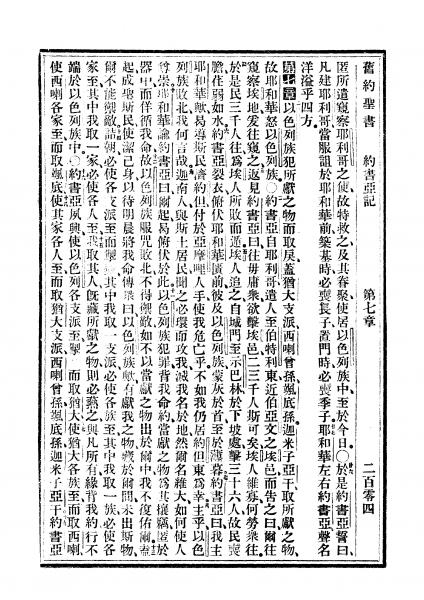 舊約聖書 約書亞記 第七章 二百零四
匿所遣窺察耶利哥之使故特救之及其眷聚使居以色列族中至於今日○於是約書亞誓曰
凡建耶利哥當服詛於耶和華前築基時必喪長子置門時必喪季子耶和華左右約書亞聲名
洋溢乎四方
第七章以色列族犯所獻之物而取戾蓋猶大支派西喇曾孫颯底孫迦米子亞干取所獻之物
故耶和華怒以色列族○約書亞自耶利哥遣人至伯特利東近伯亞文之埃邑而告之曰爾往
窺察埃地爰往窺之返見約書亞曰往毋庸衆欲擊埃邑二三千人斯可矣埃人維寡何勞衆往
於是民三千人往為埃人所敗而遁埃人追之自城門至示巴林於下坡處擊三十六人故民喪
膽作弱如水約書亞裂衣俯伏耶和華匱前彼及以色列族蒙灰於首至於薄暮約書亞曰我主
耶和華歟曷導斯民濟約但付於亞摩哩人手使我危亡乎不如我仍居約但東為幸主乎以色
列族敗北我何言哉迦南人與斯土居民聞之必環而攻我滅我名於地然爾名維大如何使人
尊崇耶和華諭約書亞曰爾起曷俯伏於此以色列族犯罪背我命約當獻之物為其攘竊匿於
器中而佯循我命故以色列族服咒敗北不得禦敵如不以當獻之物出於爾中我不復佑爾盍
起成聖斯民使潔己身以待明晨將我命傳衆曰以色列族歟有獻我之物藏於爾間未出斯物
爾不能禦敵詰朝必使各支派至而掣其中我取一支派必使各族至其中我取一族必使各
家至其中我取一家必使各人至我取其人旣藏所獻之物則必爇之與凡所有緣背我約行不
端於以色列族中○約書亞夙興使以色列各支派至掣 而取猶大使猶大各族至而取西喇
使西喇各家至而取颯底使其家各人至而取猶大支派西喇曾孫颯底孫迦米子亞干約書亞